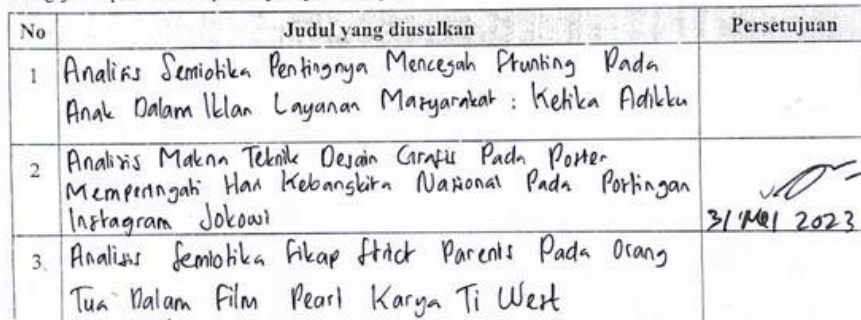 No Judul yang diusulkan Persetujuan
1 Analisis Semiotika Pentingnya Mencegah Stunting Pada
Anak Dalam Iklan Layanan Masyarakat : Ketika Adikku
2 Analisis Makna Teknik Desain Grafis Pada Poster
Memperingati Hari Kebangkitan Nasional Pada Postingan
Instagram Jokowi
31 Mei 2023
3. Analisis Semiotika Sikap Strict Parents Pada Orang
Tua Dalam Film Pearl Karya Ti West